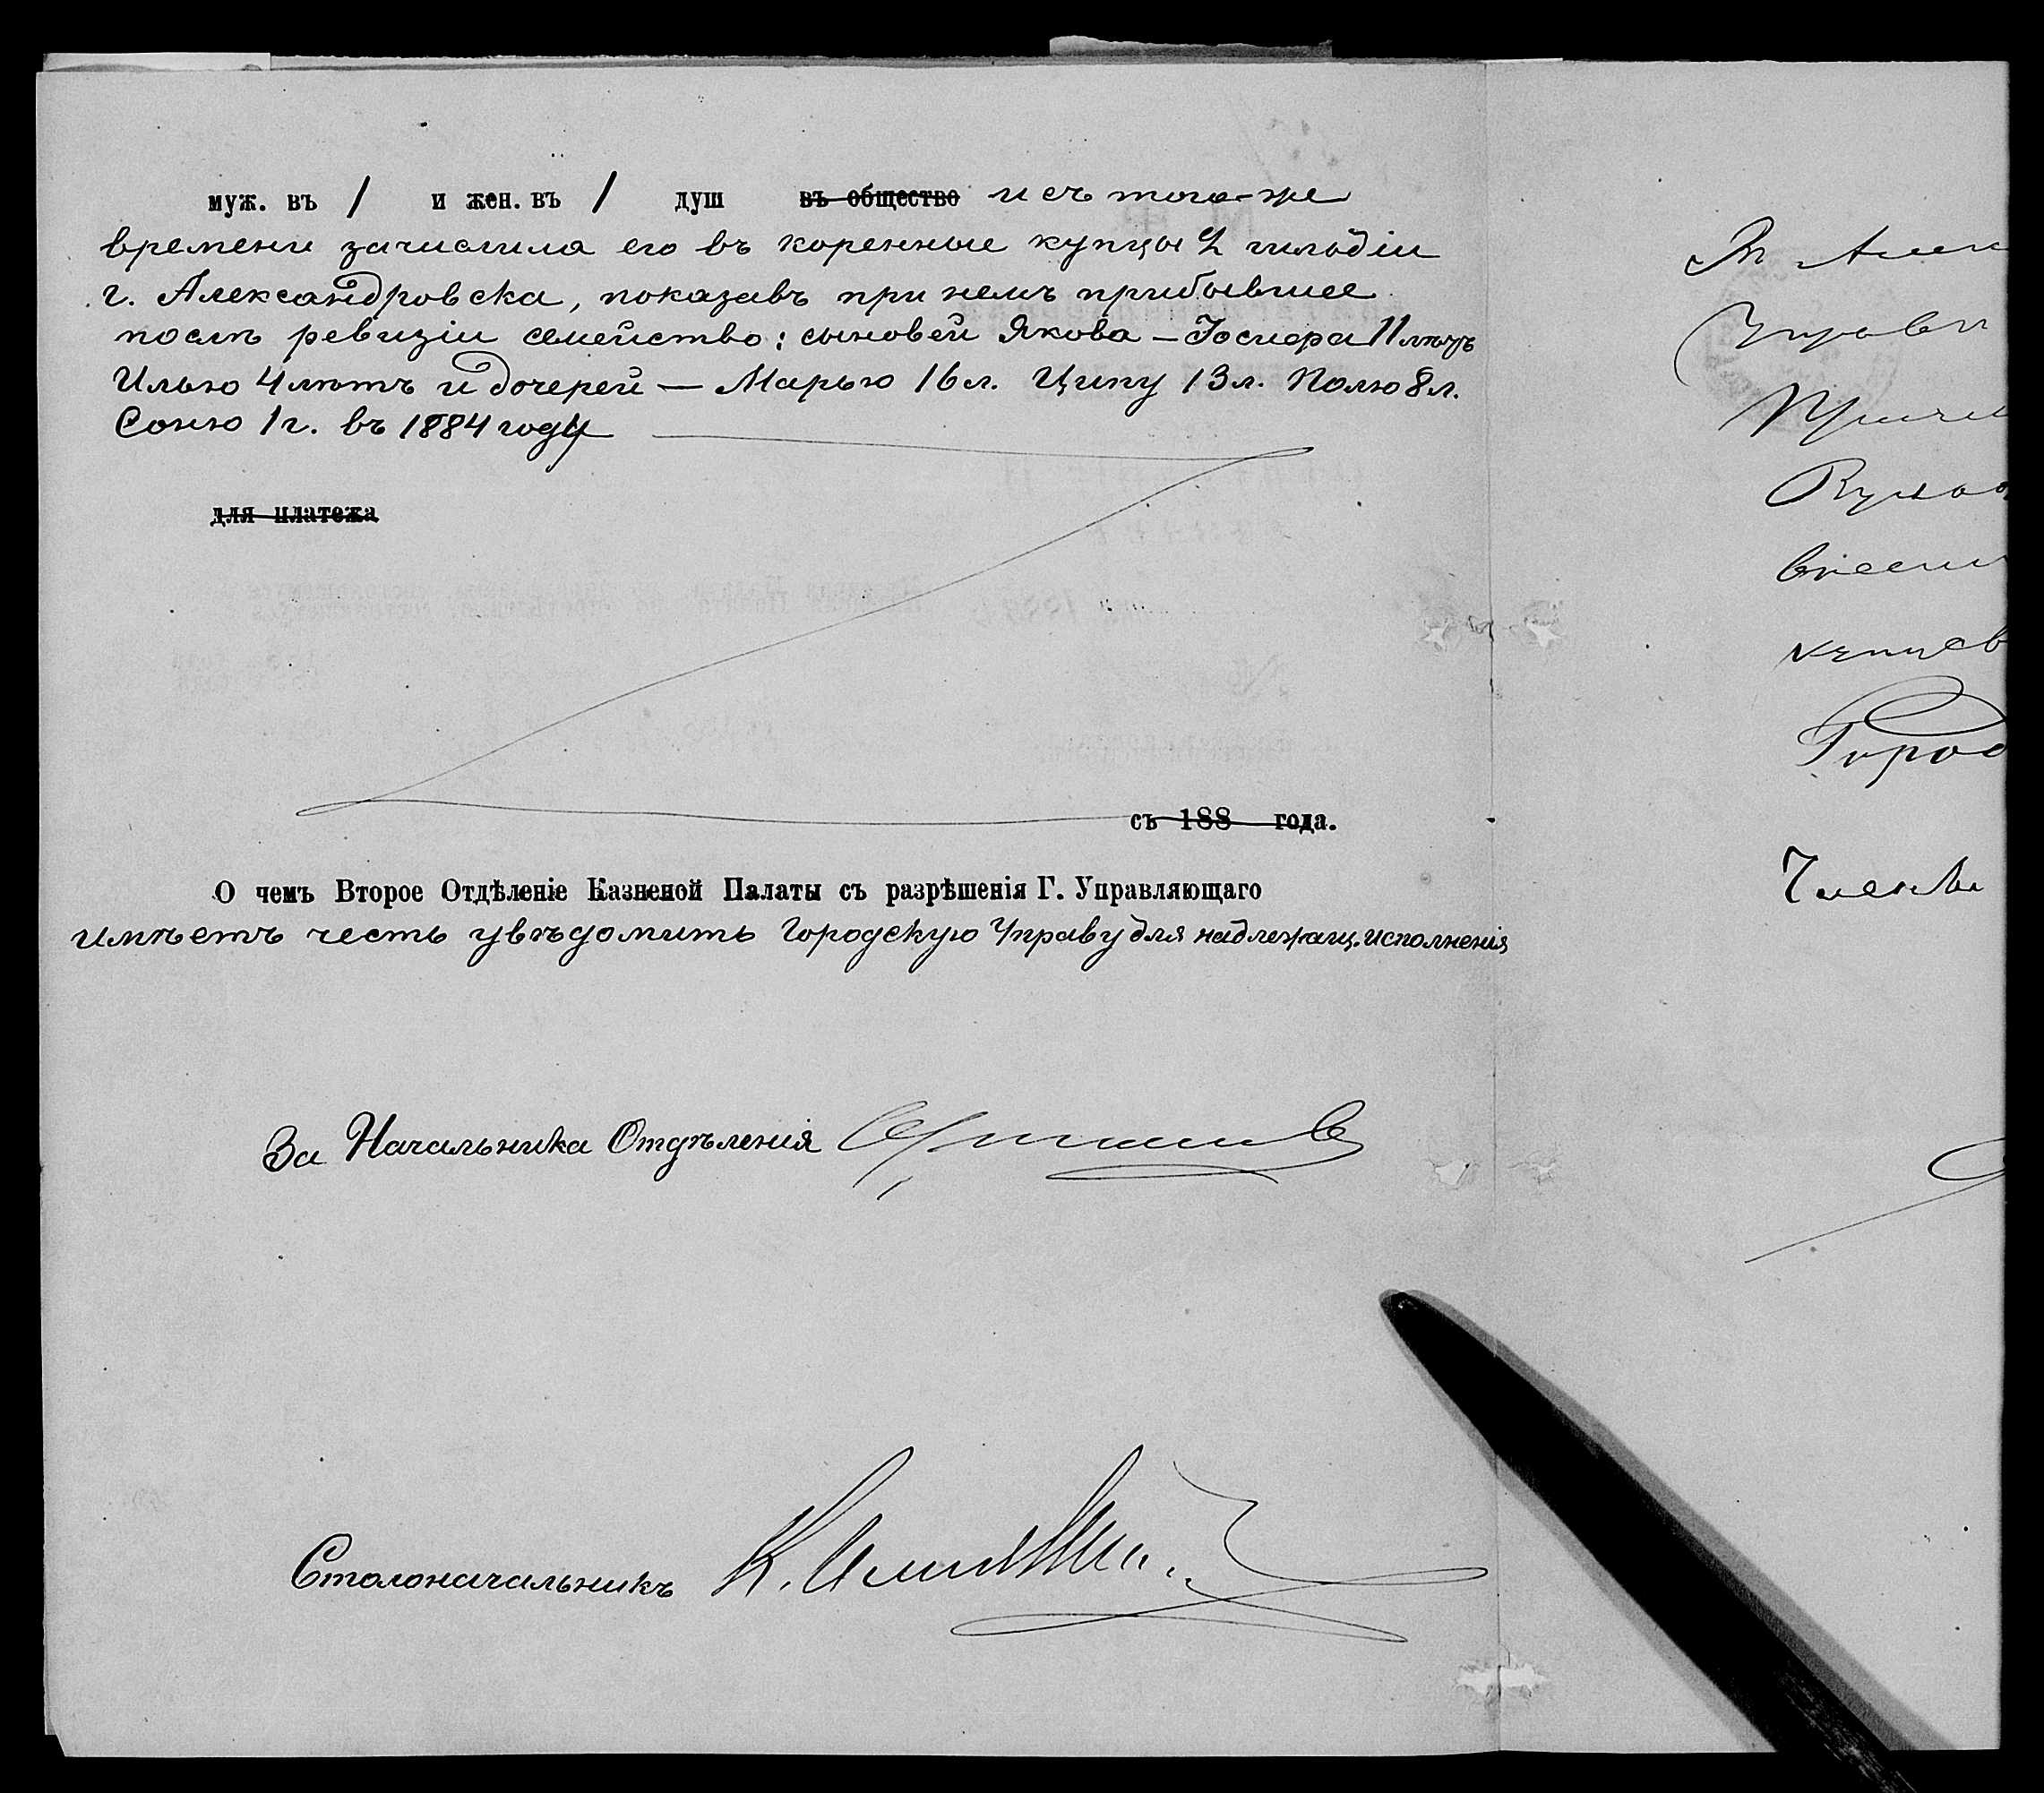 муж. въ 1 и жен. въ 1 душ въ общество и съ того-же
времени зачислила его въ коренные купцы 2 гильдіи
г. Александровска, показавъ при немъ прибывшее
послѣ ревизіи семейство: сыновей Якова-Іосифа 11 лѣтъ
Илью 4 лѣтъ и дочерей — Марью 16 л. Ципу 13 л. Полю 8 л.
Соню 1 г. въ 1884 году
для платежа
съ 188 года.
О чемъ Второе Отдѣленіе Казненой Палаты съ разрѣшенія Г. Управляющаго
имѣетъ честь увѣдомить Городскую Управу для надлежащ. исполненія
За Начальника Отдѣленія
Столоначальникъ К.
Въ Алек
Управ
Причи
купцев
Город
Члены